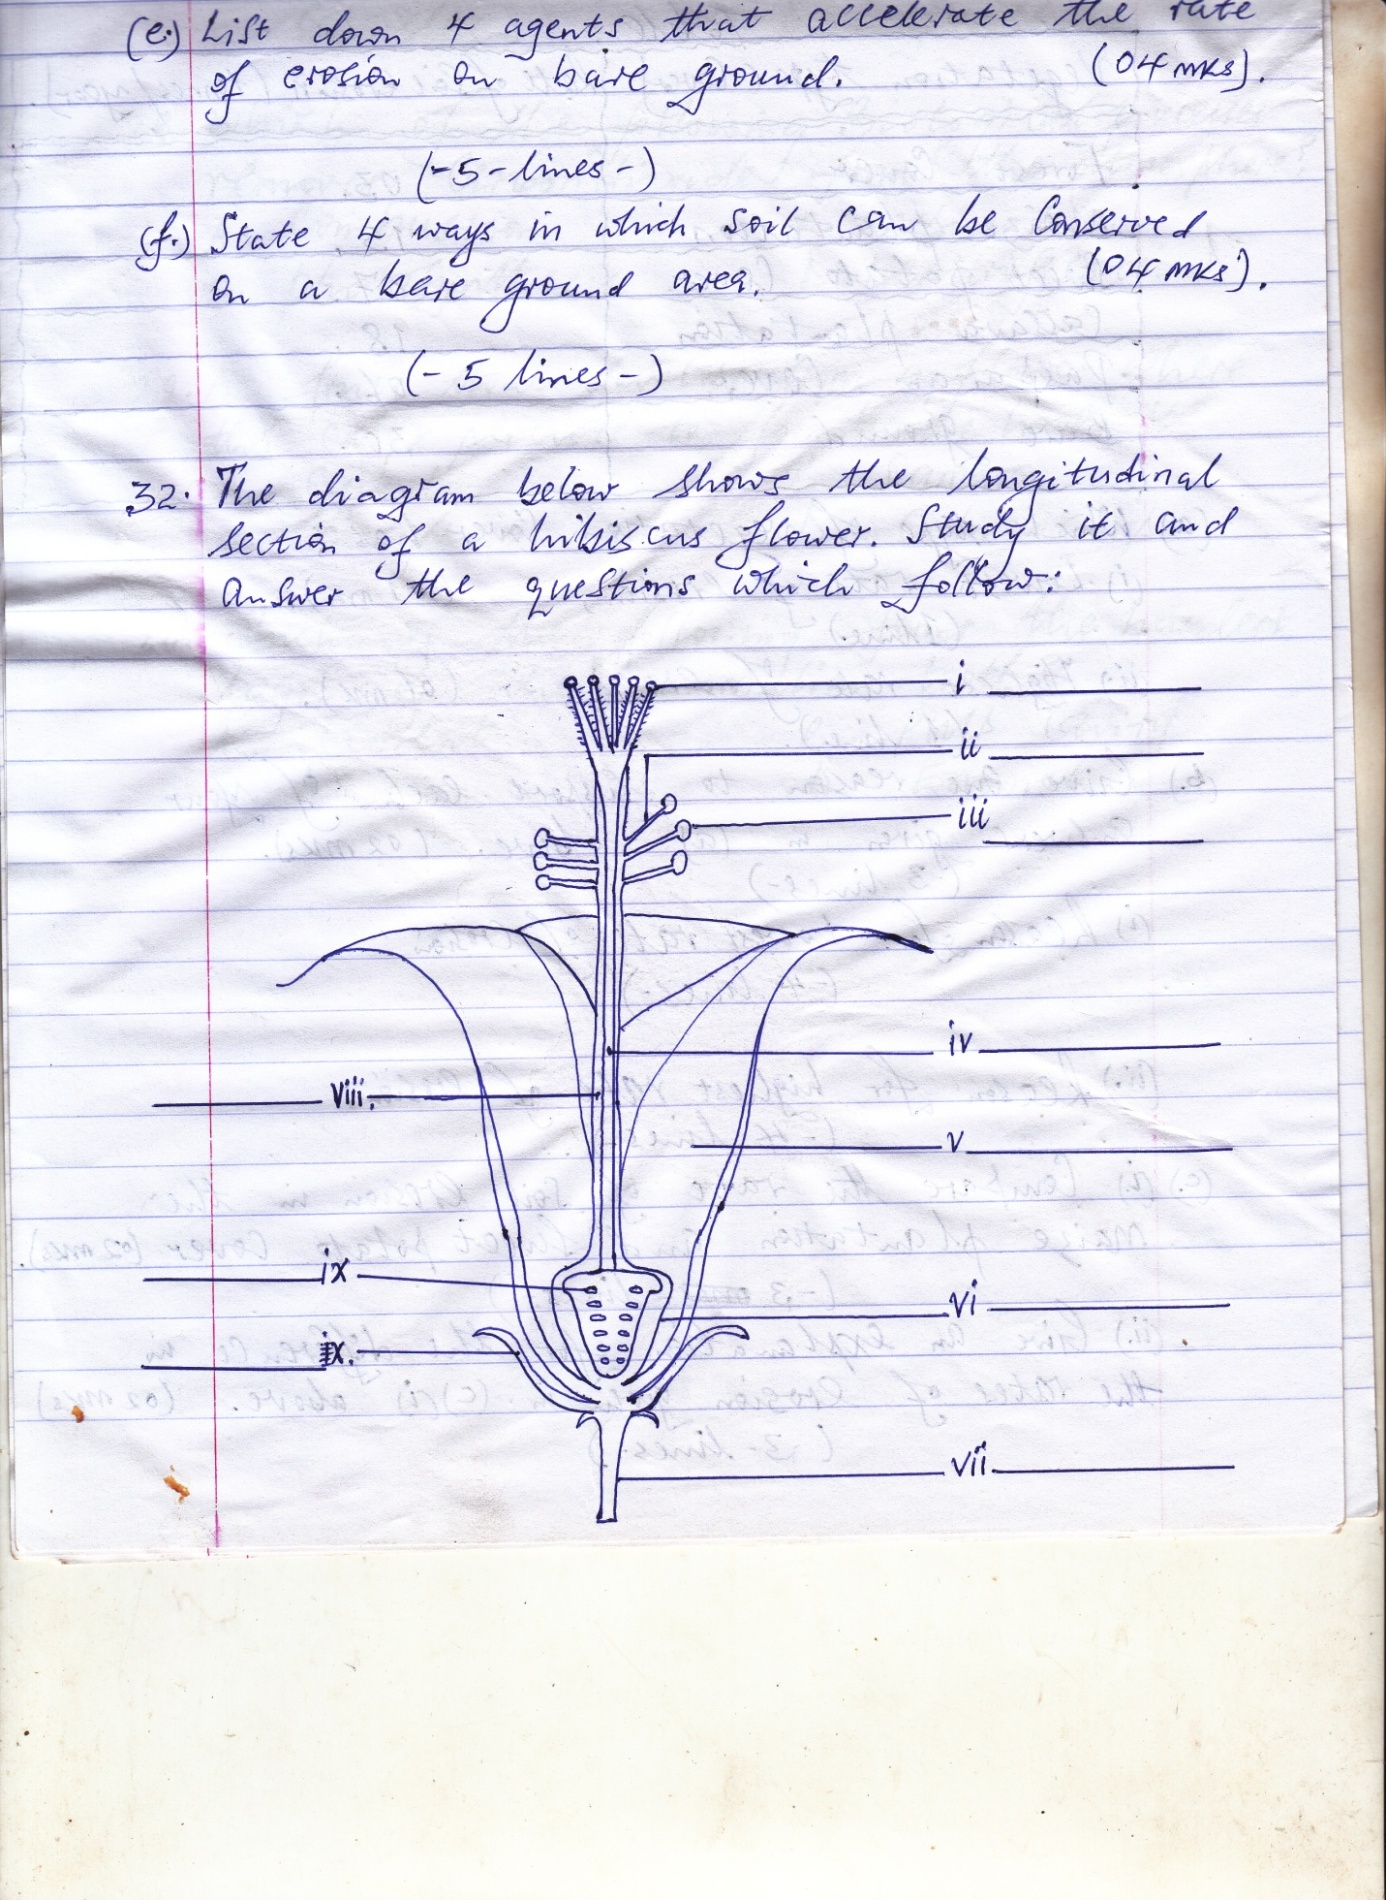 (e.) List down 4 agents that accelerate the rate
of erosion on bare ground. (04 mks).
(-5-lines-)
(f.) State 4 ways in which soil can be Conserved
on a bare ground area. (04 mks).
(-5 lines-)
32. The diagram below shows the longitudinal
section of a hibiscus flower. Study it and
answer the questions which follow:
i
ii
iii
iv
viii.
v
ix
vi
ix.
vii